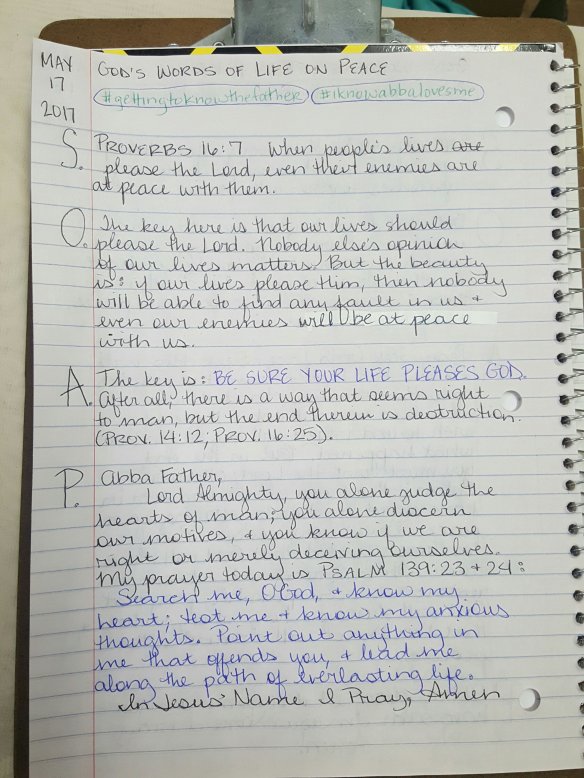 MAY
17
2017
GOD'S WORDS OF LIFE ON PEACE
#gettingtoknowthefather #iknowabbalovesme
S. PROVERBS 16:7 When people's lives are
please the Lord, even their enemies are
at peace with them.
O. The key here is that our lives should
please the Lord. Nobody else's opinion
of our lives matters. But the beauty
is: if our lives please Him, then nobody
will be able to find any fault in us +
even our enemies will be at peace
with us.
A. The key is: BE SURE YOUR LIFE PLEASES GOD.
After all, there is a way that seems right
to man, but the end therein is destruction.
(PROV. 14:12; PROV. 16:25).
P. Abba Father,
Lord Almighty, you alone judge the
hearts of man; you alone discern
our motives, + you know if we are
right or merely deceiving ourselves.
My prayer today is PSALM 139:23 + 24:
Search me, O God, + know my
heart; test me + know my anxious
thoughts. Point out anything in
me that offends you, + lead me
along the path of everlasting life.
In Jesus' Name I Pray, Amen